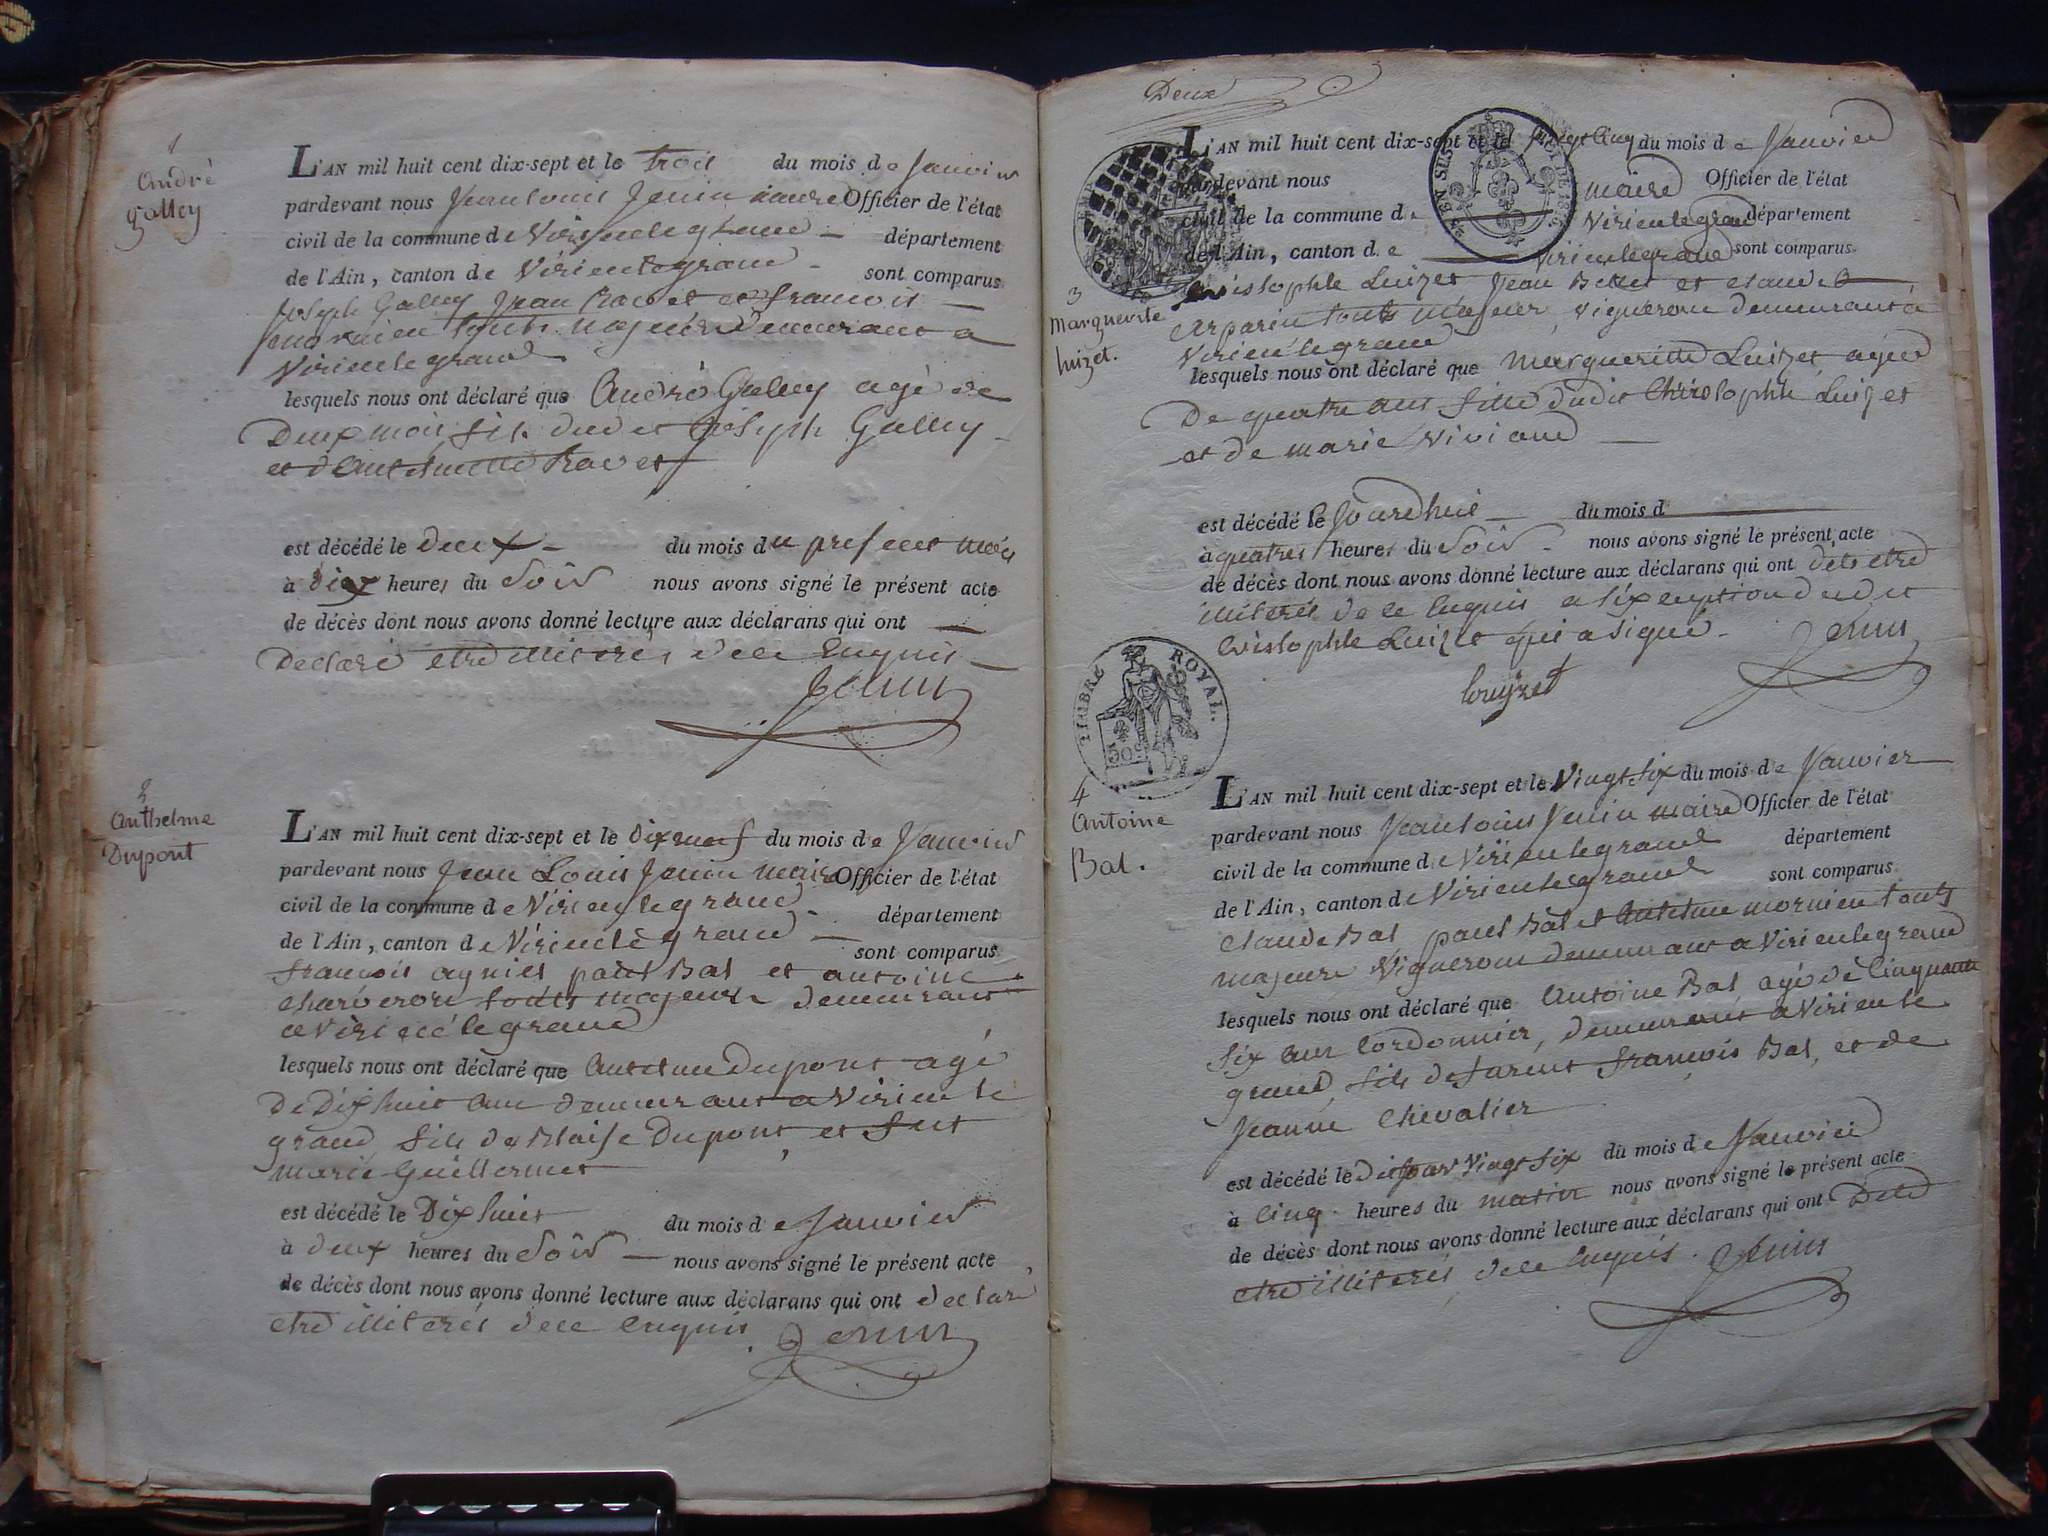 1
André
Galley
L'AN mil huit cent dix-sept et le trois du mois de Janvier
pardevant nous Jean Louis Jenin maire Officier de l'état
civil de la commune de Virieu le grand département
de l'Ain, canton de Virieu le grand sont comparus
Joseph Galley Jean Ravet et francois
touts majeurs Demeurant a
Virieu le grand
lesquels nous ont déclaré que André Galley agé de
Deux mois fils dudit Joseph Galley
et d'Anthelmette Ravet
est décédé le deux du mois du present mois
à dix heures du Soir nous avons signé le présent acte
de décès dont nous avons donné lecture aux déclarans qui ont
Declaré etre illiterés de ce Enquis
Jenin
2
Anthelme
Dupont
L'AN mil huit cent dix-sept et le Dix neuf du mois de Janvier
pardevant nous Jean Louis Jenin maire Officier de l'état
civil de la commune de Virieu le grand département
de l'Ain, canton de Virieu le grand sont comparus
francois agniel paul Bal et antoine
Charveron touts majeurs demeurant
a Virieu le grand
lesquels nous ont déclaré que Antelme Dupont agé
de Dix huit ans demeurant a Virieu le
grand fils de Blaise Dupont et fut
marie Guillermet
est décédé le Dix huit du mois de Janvier
à deux heures du Soir nous avons signé le présent acte
de décès dont nous avons donné lecture aux déclarans qui ont declaré
etre illiterés de ce Enquis
Jenin
Deux
3
Marguerite
Luizet.
L'AN mil huit cent dix-sept et le vingt Cinq du mois de Janvier
pardevant nous maire Officier de l'état
civil de la commune de Virieu le grand département
de l'Ain, canton de Virieu le grand sont comparus
Cristophle Luizet Jean Bellet et claude
Carparin touts majeur, vigneron demeurant à
Virieu le grand
lesquels nous ont déclaré que Margueritte Luizet agée
De quatre ans fille dudit Christophle Luizet
et de marie Viviand
est décédé le Jourdhui du mois d
à quatres heures du Soir nous avons signé le présent acte
de décès dont nous avons donné lecture aux déclarans qui ont dits etre
illiterés de ce Enquis a l'exception dudit
Cristophle Luizet qui a signé.
Jenin
Louyzet
TIMBRE ROYAL.
50
4
Antoine
Bal.
L'AN mil huit cent dix-sept et le Vingt six du mois de Janvier
pardevant nous Jean Louis Jenin maire Officier de l'état
civil de la commune de Virieu le grand département
de l'Ain, canton de Virieu le grand sont comparus
Claude Bal paul Bal et Antelme mornieu touts
majeurs Vigneron demeurant a Virieu le grand
lesquels nous ont déclaré que Antoine Bal agé de Cinquante
six ans Cordonnier, demeurant a Virieu le
grand, fils de farent francois Bal, et de
Jeanne Chevalier
est décédé le dit Jour Vingt Six du mois de Janvier
à Cinq heures du matin nous avons signé le présent acte
de décès dont nous avons donné lecture aux déclarans qui ont Dits
etre illiterés de ce Enquis.
Jenin